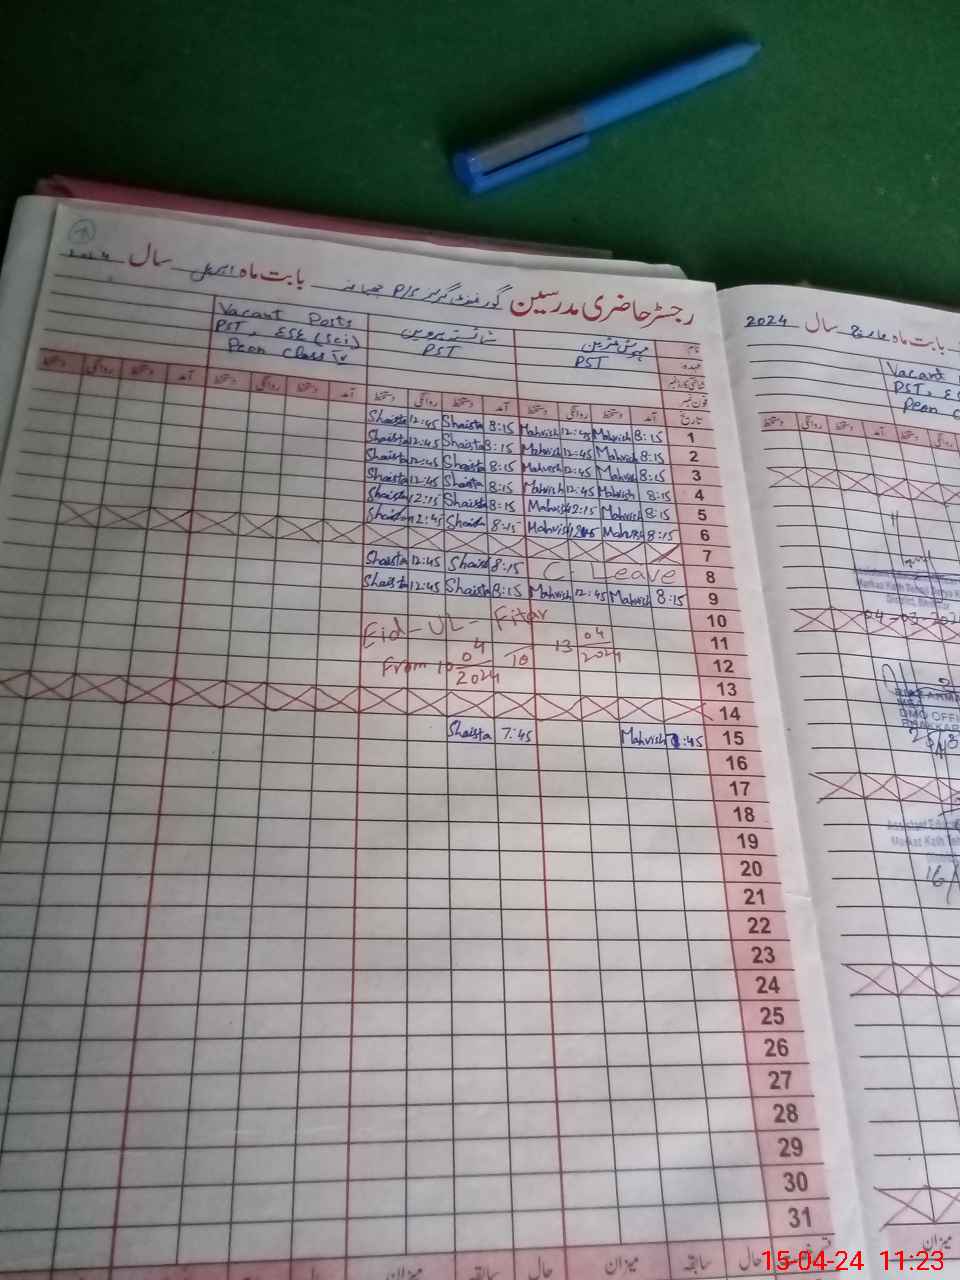 رجسٹر حاضری مدرسین گورنمنٹ گرلز P/S بابت ماہ اپریل سال
نام
عہدہ
تاریخ
PST
شائستہ پروین
PST
Vacant Posts
PST, ESE (Sci)
Peon Class IV
آمد دستخط روانگی دستخط آمد دستخط روانگی دستخط آمد دستخط روانگی دستخط آمد دستخط روانگی دستخط
1 8:15 Mahvish 12:45 Mahvish 8:15 Shaista 12:45 Shaista
2 8:15 Mahvish 12:45 Mahvish 8:15 Shaista 12:45 Shaista
3 8:15 Mahvish 12:45 Mahvish 8:15 Shaista 12:45 Shaista
4 8:15 Mahvish 12:45 Mahvish 8:15 Shaista 12:45 Shaista
5 8:15 Mahvish 12:15 Mahvish 8:15 Shaista 12:15 Shaista
6 8:15 Mahvish 12:45 Mahvish 8:15 Shaista 12:45 Shaista
7
8 C. Leave 8:15 Shaista 12:45 Shaista
9 8:15 Mahvish 12:45 Mahvish 8:15 Shaista 12:45 Shaista
10
11 Eid-UL-Fitar
12 From 10 04/2024 To 13 04/2024
13
14
15 7:45 Mahvish 7:45 Shaista
16
17
18
19
20
21
22
23
24
25
26
27
28
29
30
31
میزان حال سابقہ میزان حال سابقہ
بابت ماہ مارچ سال 2024
Vacant
PST,
Peon
دستخط روانگی دستخط آمد دستخط روانگی
04-03-202
DMO OFFI
میزان
15-04-24 11:23